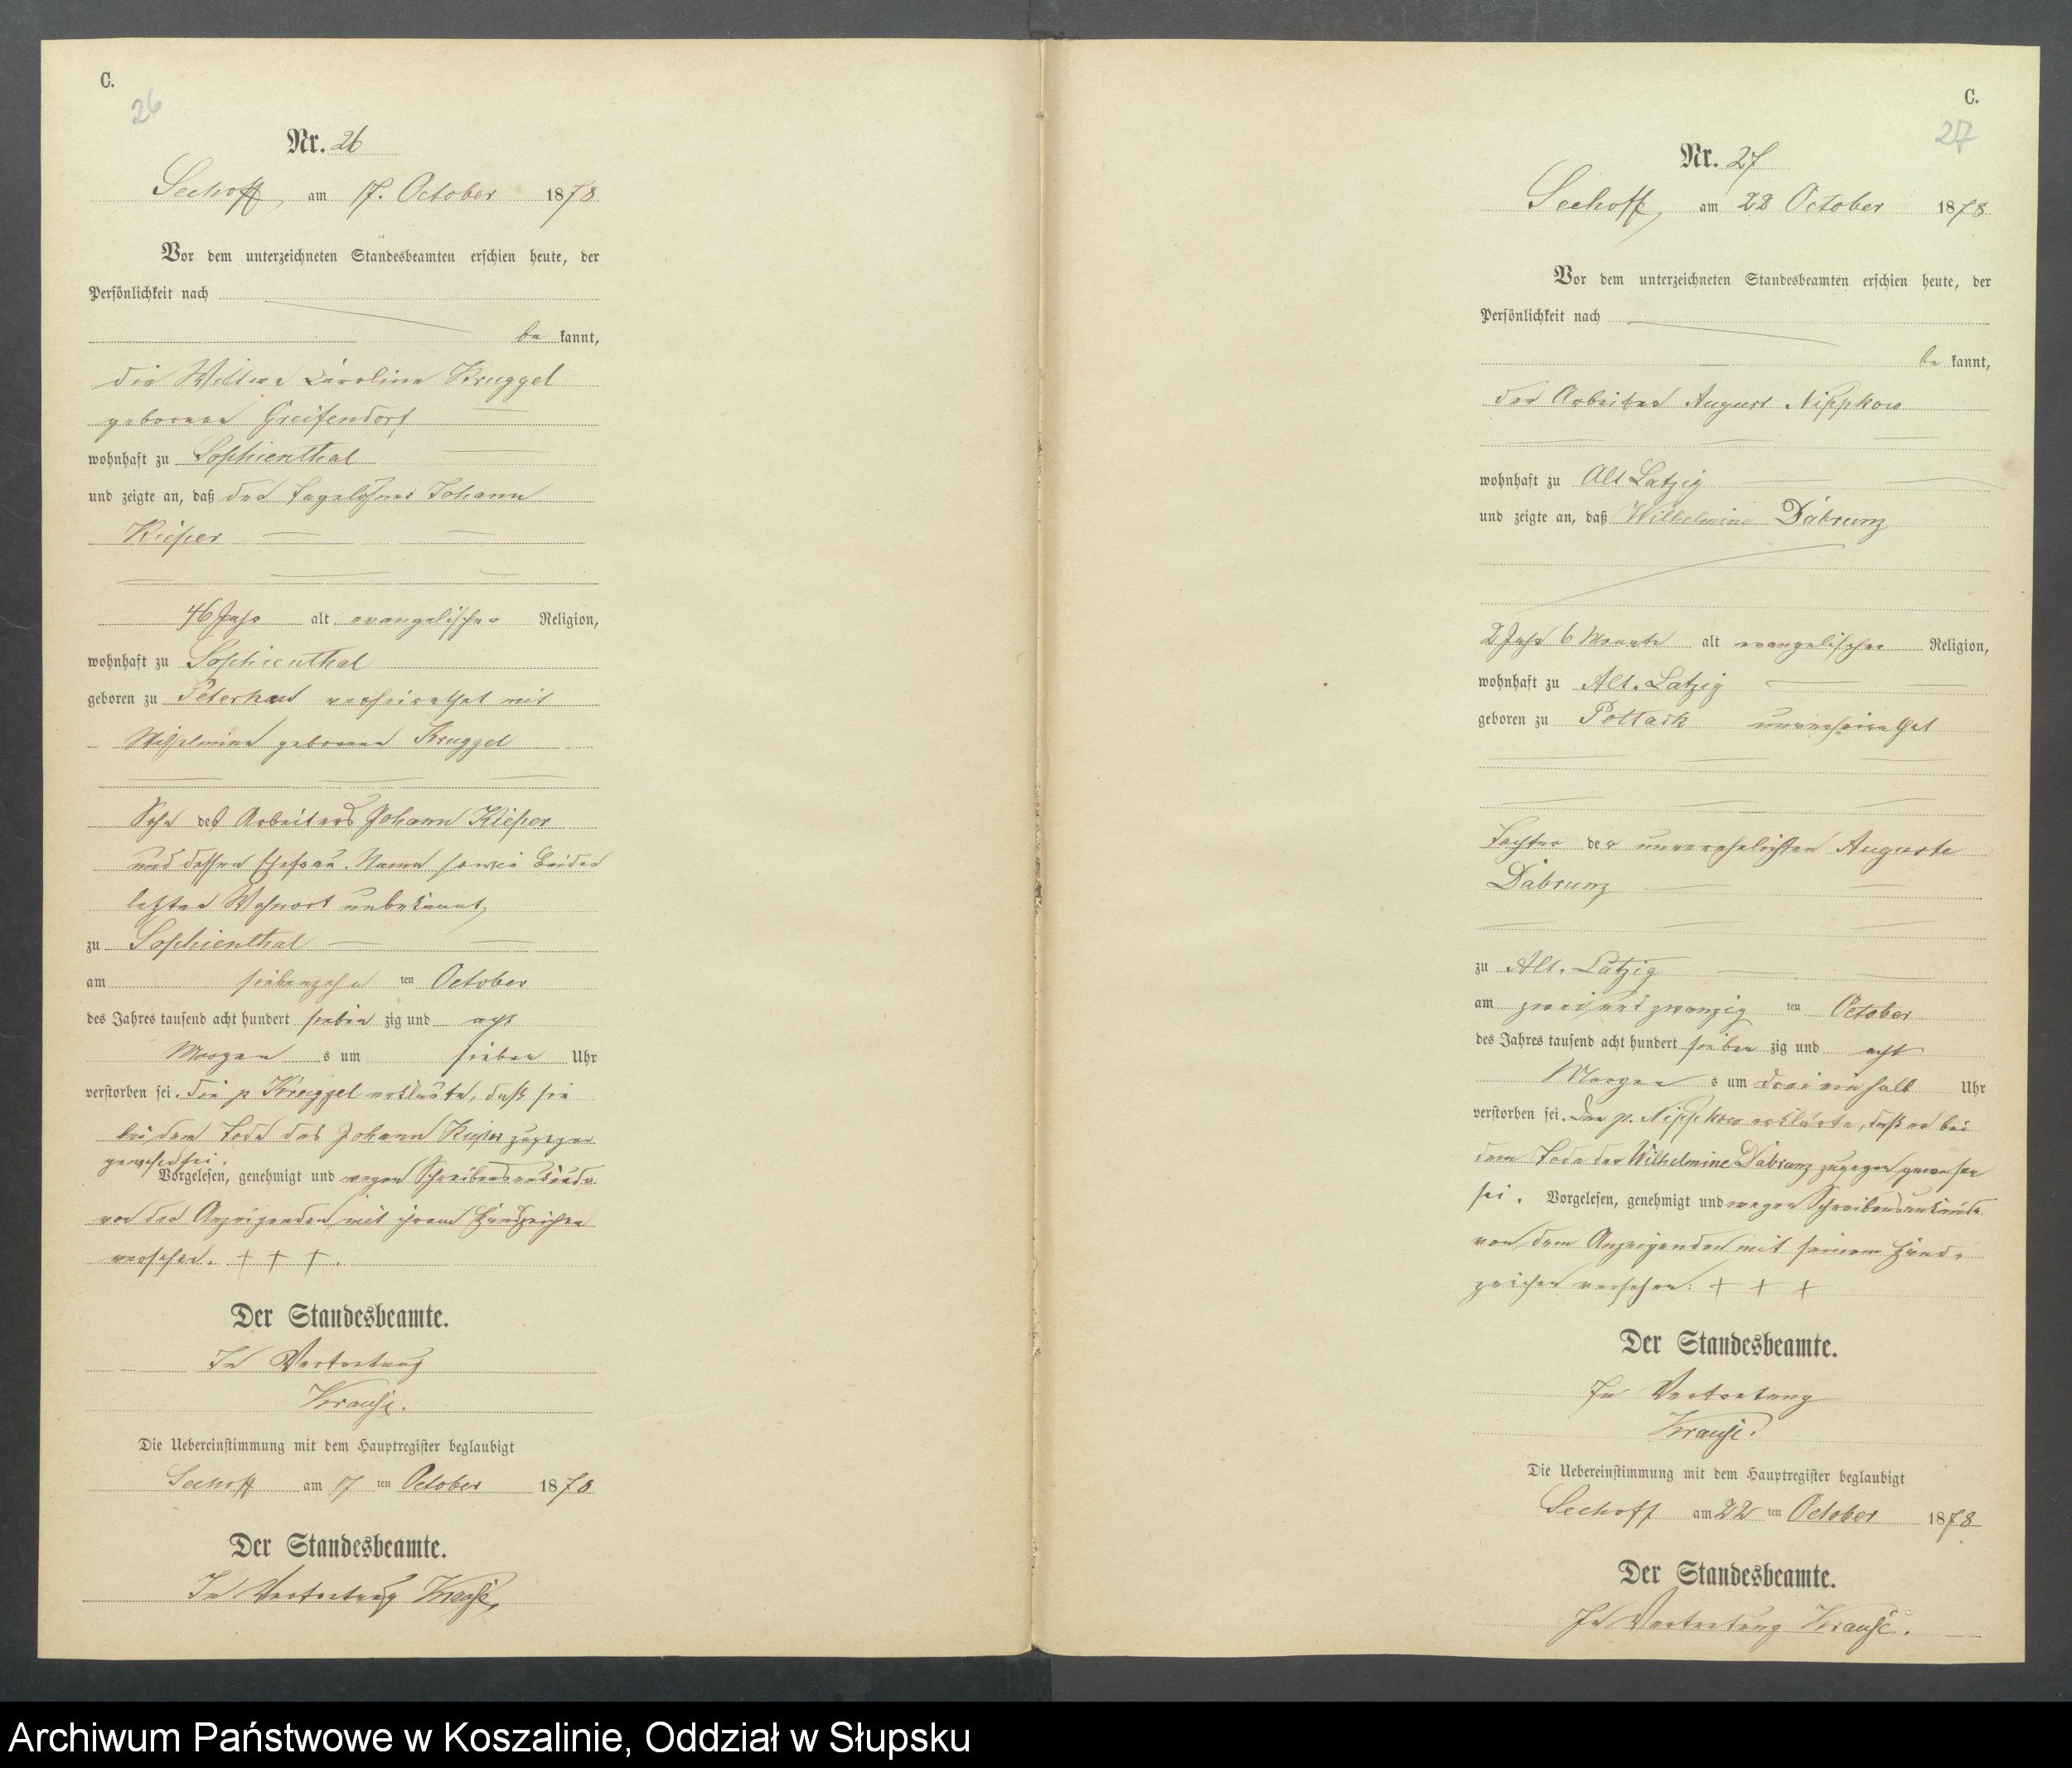 C.
26
Nr. 26
Seehoff, am 17. October 1878
Vor dem unterzeichneten Standesbeamten erschien heute, der
Persönlichkeit nach
be kannt,
die Wittwe Caroline Kruggel
geborene Greifendorf
wohnhaft zu Sophienthal
und zeigte an, daß der Tagelöhner Johann
Kieper
46 Jahr alt evangelischer Religion,
wohnhaft zu Sophienthal
geboren zu verheirathet mit
Wilhelmine geborene Kruggel
Sohn des Arbeiters Johann Kieper
und dessen Ehefrau. Namen sowie beider
letzter Wohnort unbekannt,
zu Sophienthal
am siebenzehn ten October
des Jahres tausend acht hundert sieben zig und acht
Morgen s um sieben Uhr
verstorben sei. Die p Kruggel erklärte, daß sie
bei dem Tode des Johann Kieper zugegen
gewesen sei.
Vorgelesen, genehmigt und wegen Schreibensunkunde
von der Anzeigenden mit ihrem Handzeichen
versehen. + + +.
Der Standesbeamte.
In Vertretung
Krause.
Die Uebereinstimmung mit dem Hauptregister beglaubigt
Seehoff am 17 ten October 1878
Der Standesbeamte.
In Vertretung Krause.
C.
27
Nr. 27
Seehoff, am 22 October 1878
Vor dem unterzeichneten Standesbeamten erschien heute, der
Persönlichkeit nach
be kannt,
der Arbeiter August Nippkow
wohnhaft zu Alt Latzig
und zeigte an, daß Wilhelmine Dabrunz
2 Jahr 6 Monate alt evangelischer Religion,
wohnhaft zu Alt. Latzig
geboren zu Pottack unverheirathet
Tochter der unverehelichten Auguste
Dabrunz
zu Alt. Latzig
am zweiundzwanzig ten October
des Jahres tausend acht hundert sieben zig und acht
Morgen s um drei ein halb Uhr
verstorben sei. Der p. Nippkow erklärte, daß er bei
dem Tode der Wilhelmine Dabrunz zugegen gewesen
sei. Vorgelesen, genehmigt und wegen Schreibensunkunde
von dem Anzeigenden mit seinem Hand-
zeichen versehen. + + +
Der Standesbeamte.
In Vertretung
Krause.
Die Uebereinstimmung mit dem Hauptregister beglaubigt
Seehoff am 22 ten October 1878
Der Standesbeamte.
In Vertretung Krause.
Archiwum Państwowe w Koszalinie, Oddział w Słupsku